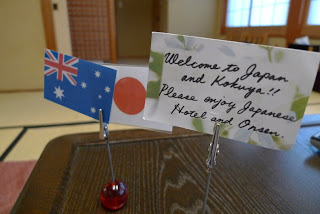 Welcome to Japan
and Kokuya!!
Please enjoy Japanese
Hotel and Onsen